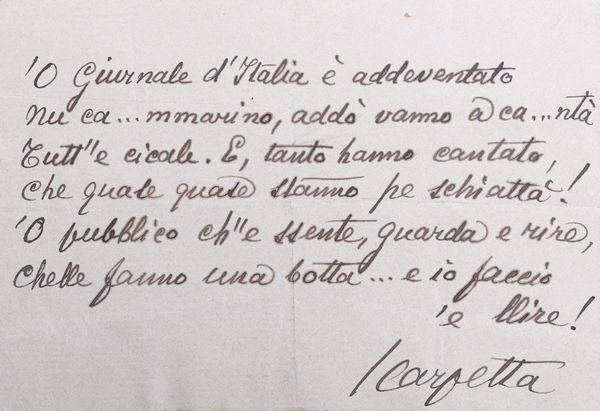 'O Giurnale d'Italia è addeventato
nu ca...mmarino, addò vanno a ca...ntà
tutt''e cicale. E, tanto hanno cantato,
che quase quase stanno pe schiattà!
'O pubblico ch''e ssente, guarda e rire,
chelle fanno una botta... e io faccio
'e llire!
Scarpetta